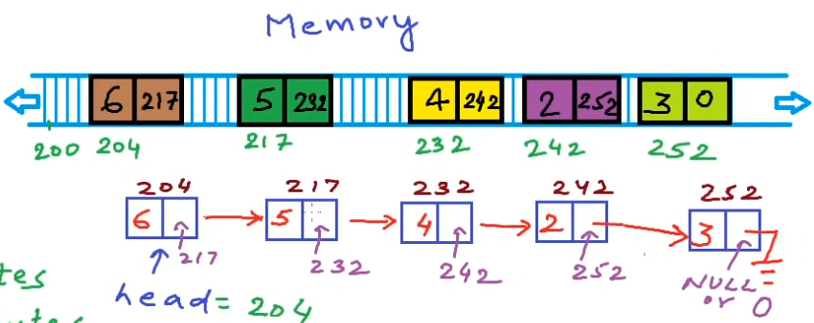 Memory
6 217 5 232 4 242 2 252 3 0
200 204 217 232 242 252
204 217 232 242 252
6 5 4 2 3
217 232 242 252 NULL
or 0
head = 204